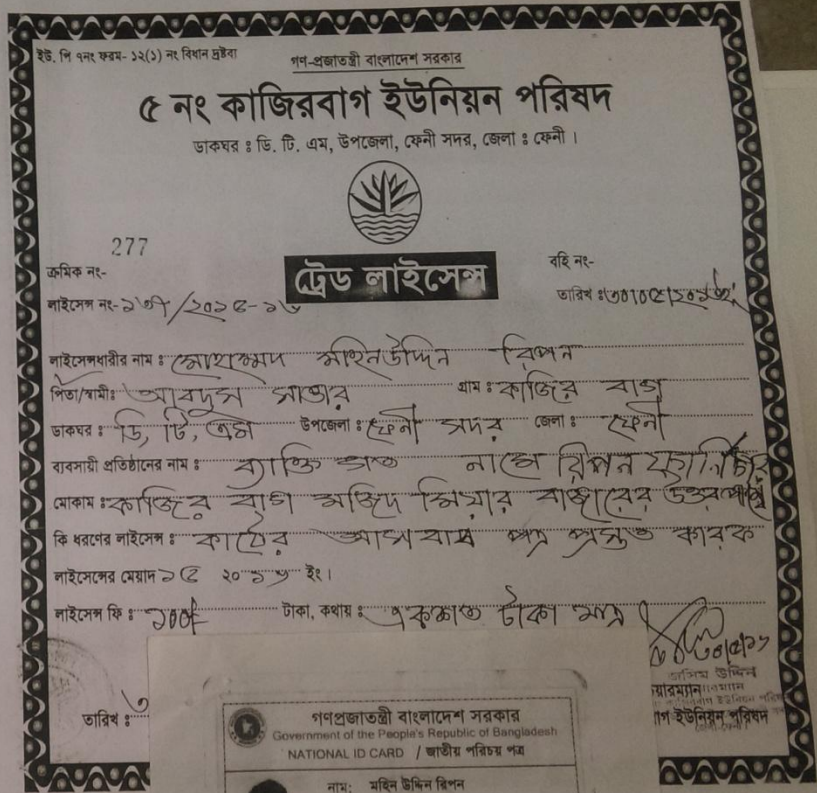 ইউ. পি ৭নং ফরম- ১২(১) নং বিধান দ্রষ্টব্য
গণ-প্রজাতন্ত্রী বাংলাদেশ সরকার
৫ নং কাজিরবাগ ইউনিয়ন পরিষদ
ডাকঘর : ডি. টি. এম, উপজেলা, ফেনী সদর, জেলা : ফেনী ।
277
ক্রমিক নং-
ট্রেড লাইসেন্স
বহি নং-
লাইসেন্স নং-
তারিখ :
লাইসেন্সধারীর নাম : মোহাম্মদ মহিনউদ্দিন রিপন
পিতা/স্বামী: আবদুস সাত্তার গ্রাম : কাজির বাগ
ডাকঘর : ডি, টি, এম উপজেলা : ফেনী সদর জেলা : ফেনী
ব্যবসায়ী প্রতিষ্ঠানের নাম : ব্যাক্তি গত নামে রিপন ফার্নিচার
মোকাম : কাজির বাগ মজিদ মিয়ার বাজারের উত্তর পার্শ্বে
কি ধরণের লাইসেন্স : কাঠের আসবাব পত্র প্রস্তুত কারক
লাইসেন্সের মেয়াদ ১৫ ২০১৬ ইং।
লাইসেন্স ফি : ১০০/- টাকা, কথায় : একশত টাকা মাত্র
জসিম উদ্দিন
তারিখ :
গ ইউনিয়ন পরিষদ
গণপ্রজাতন্ত্রী বাংলাদেশ সরকার
Government of the People's Republic of Bangladesh
NATIONAL ID CARD / জাতীয় পরিচয় পত্র
নাম: মহিন উদ্দিন রিপন